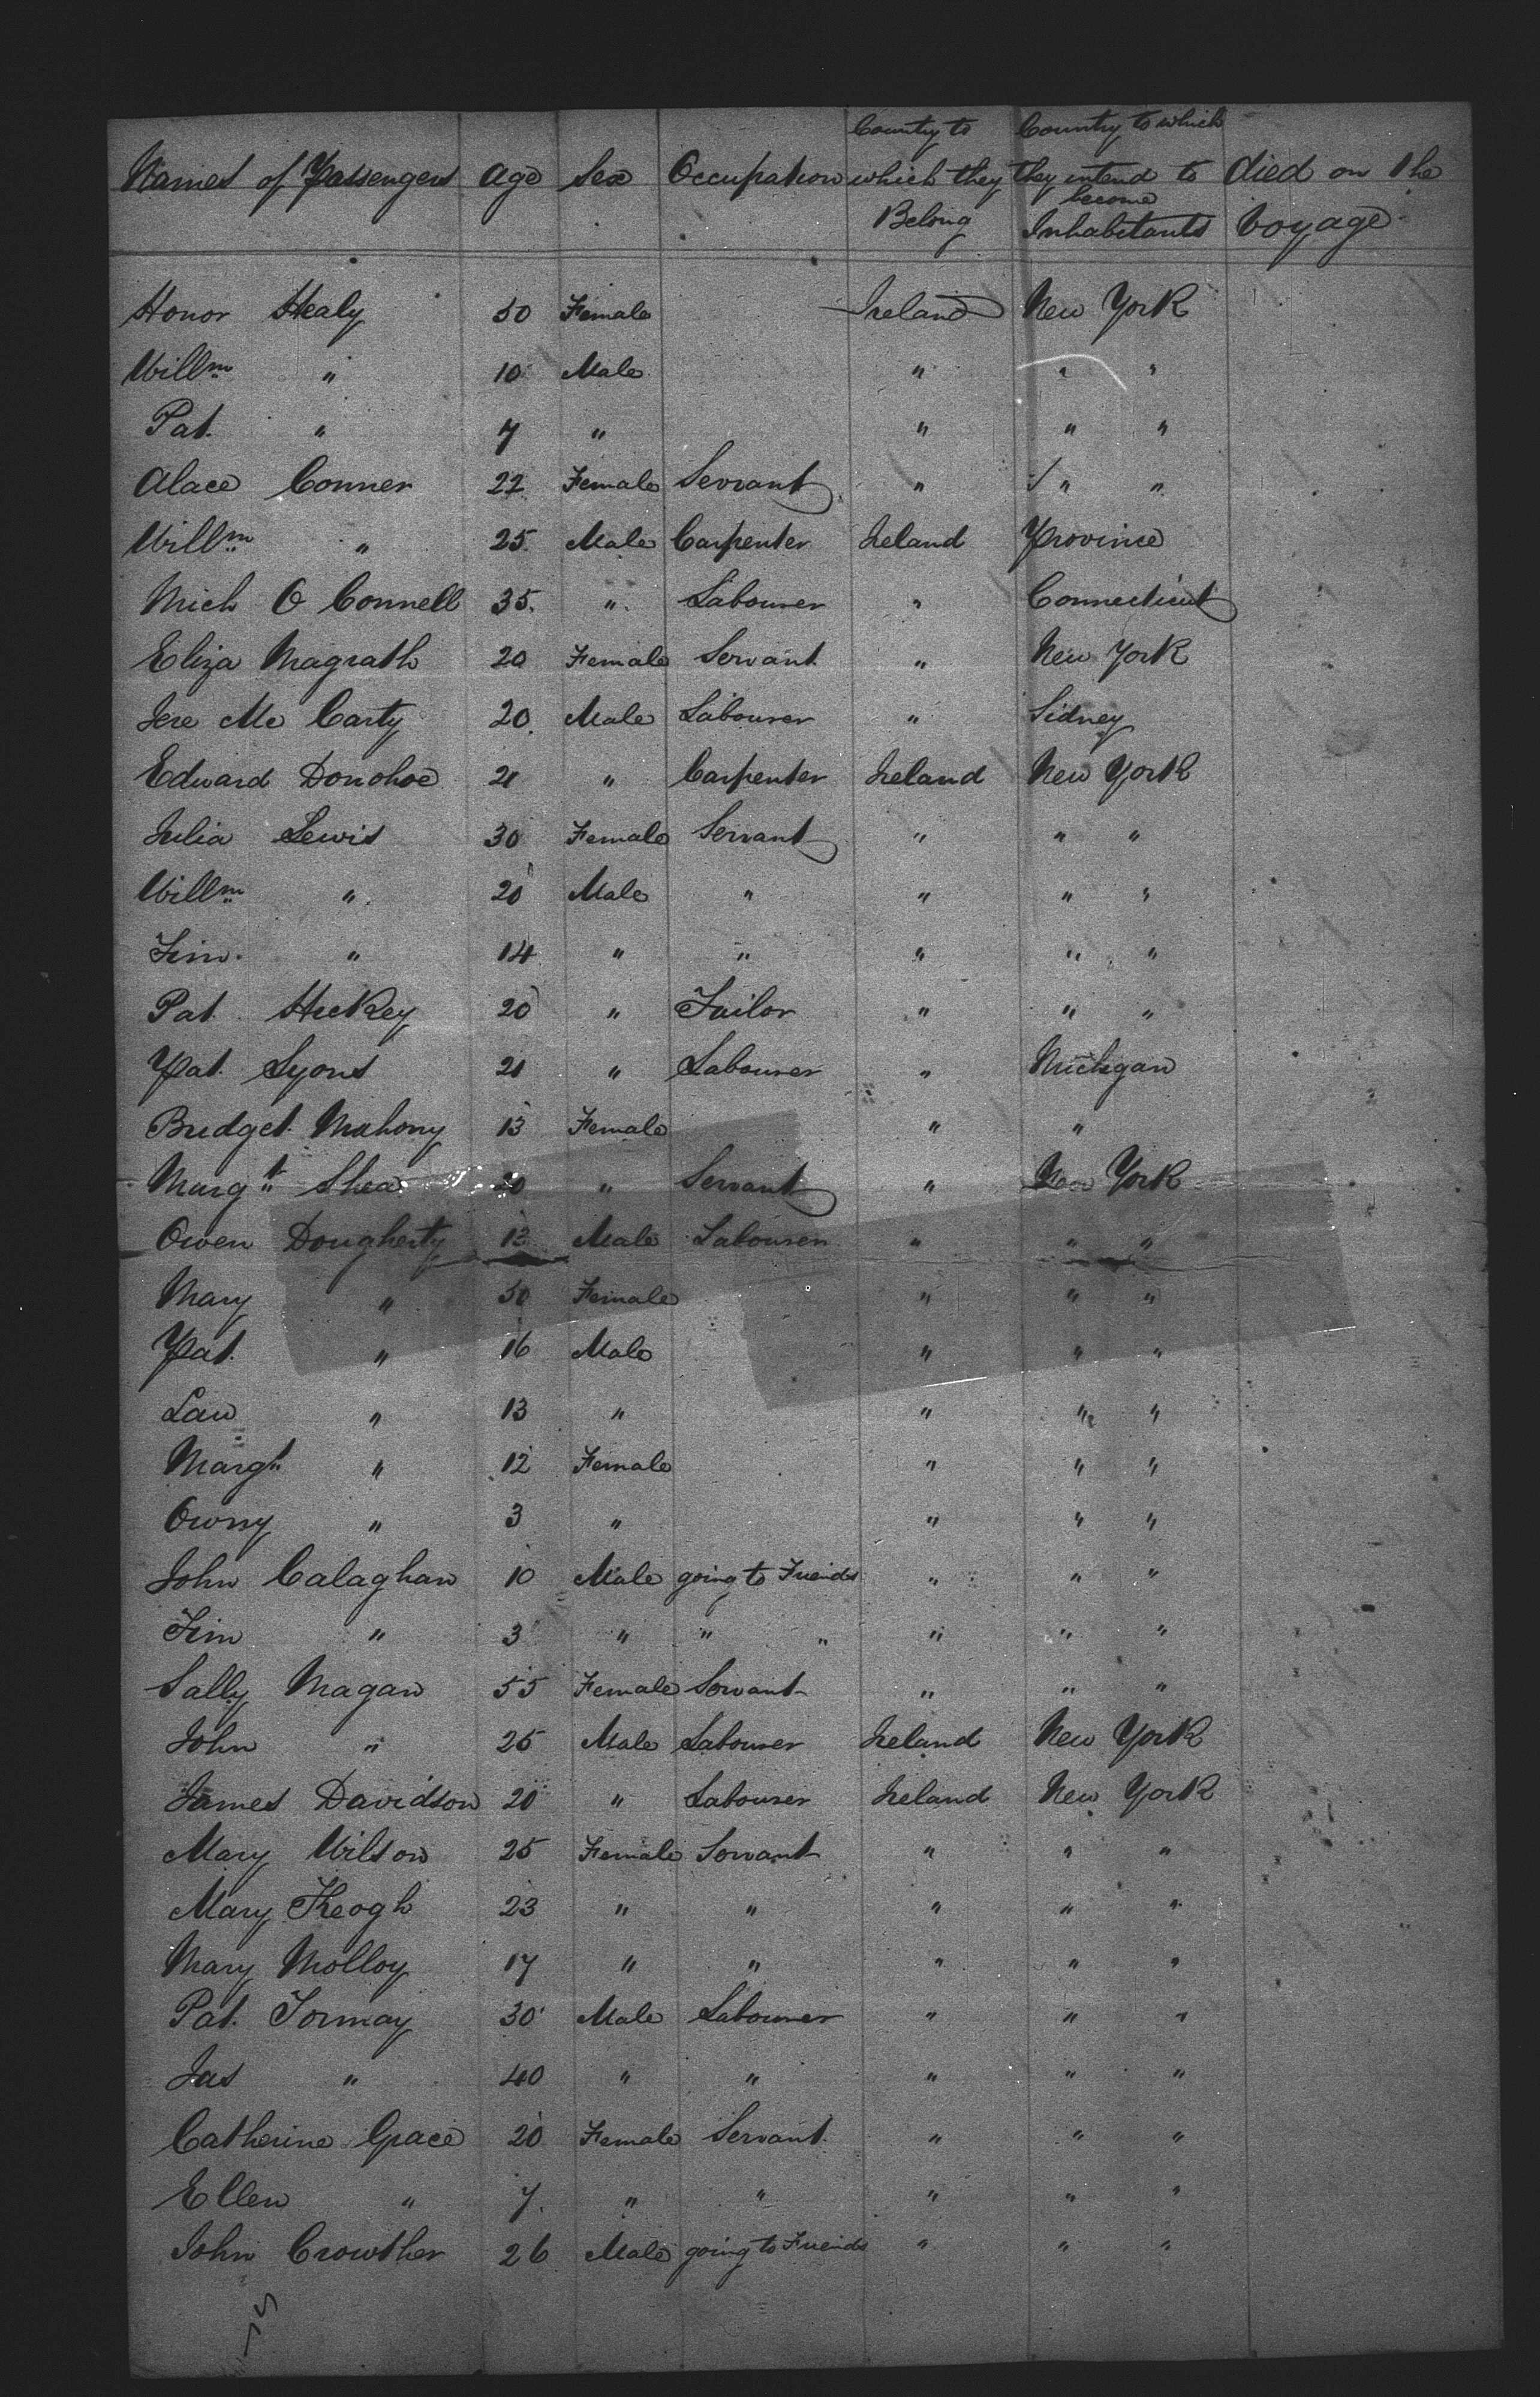 Names of Passengers Age Sex Occupation Country to which they Belong Country to which they intend to become Inhabitants Died on the Voyage
Honor Healy 50 Female Ireland New York
Willm " 10 Male " " "
Pat. " 7 " " " "
Alace Conner 22 Female Servant " " "
Willm " 25 Male Carpenter Ireland Province
Mich O Connell 35 " Labourer " Connecticut
Eliza Magrath 20 Female Servant " New York
Jere Mc Carty 20 Male Labourer " Sidney
Edward Donohoe 21 " Carpenter Ireland New York
Julia Lewis 30 Female Servant " " "
Willm " 20 Male " " " "
Tim " 14 " " " " "
Pat Hickey 20 " Tailor " " "
Pat. Lyons 21 " Labourer " Michigan
Bridget Mahony 13 Female " "
Margt Shea " Servant " New York
Owen Dougherty Male Labourer " " "
Mary " 50 Female " " "
Pat. " 16 Male " " "
Law " 13 " " " "
Margt " 12 Female " " "
Owny " 3 " " " "
John Calaghan 10 Male going to Friends " " "
Tim " 3 " " " " " "
Sally Magan 55 Female Servant " " "
John " 25 Male Labourer Ireland New York
James Davidson 20 " Labourer Ireland New York
Mary Wilson 25 Female Servant " " "
Mary Keogh 23 " " " " "
Mary Molloy 17 " " " " "
Pat. Tormay 30 Male Labourer " " "
Jas " 40 " " " " "
Catherine Grace 20 Female Servant " " "
Ellen " 7 " " " " "
John Crowther 26 Male going to Friends " " "